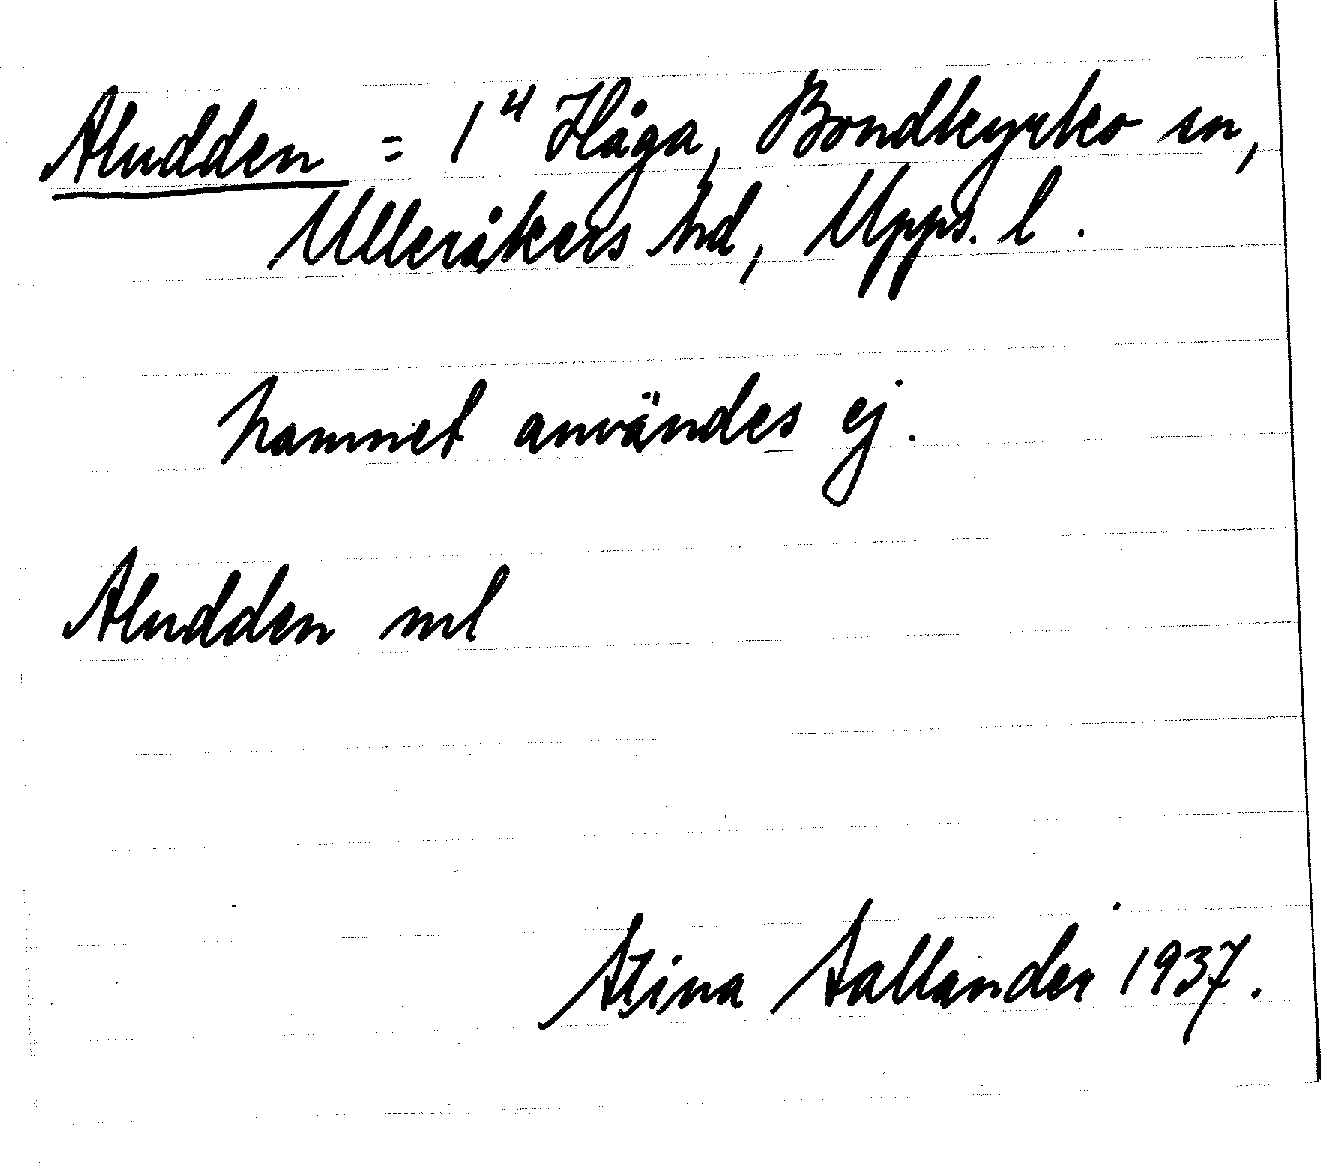 Aludden = 1⁴ Håga, Bondkyrko sn,
Ulleråkers hd, Upps. l.
Namnet användes ej.
Aludden ml
Stina Sallander 1937.